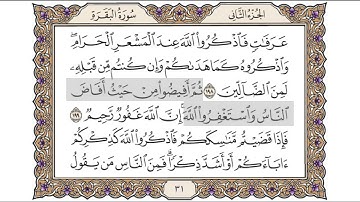 سُورَةُ البَقَرَةِ الجُزْءُ الثَّانِي
عَرَفَاتٍ فَاذْكُرُوا اللَّهَ عِنْدَ الْمَشْعَرِ الْحَرَامِ ۖ
وَاذْكُرُوهُ كَمَا هَدَىٰكُمْ وَإِن كُنتُم مِّن قَبْلِهِ
لَمِنَ الضَّالِّينَ ١٩٨ ثُمَّ أَفِيضُوا مِنْ حَيْثُ أَفَاضَ
النَّاسُ وَاسْتَغْفِرُوا اللَّهَ إِنَّ اللَّهَ غَفُورٌ رَّحِيمٌ ١٩٩
فَإِذَا قَضَيْتُم مَّنَاسِكَكُمْ فَاذْكُرُوا اللَّهَ كَذِكْرِكُمْ
ءَابَاءَكُمْ أَوْ أَشَدَّ ذِكْرًا ۗ فَمِنَ النَّاسِ مَن يَقُولُ
٣١